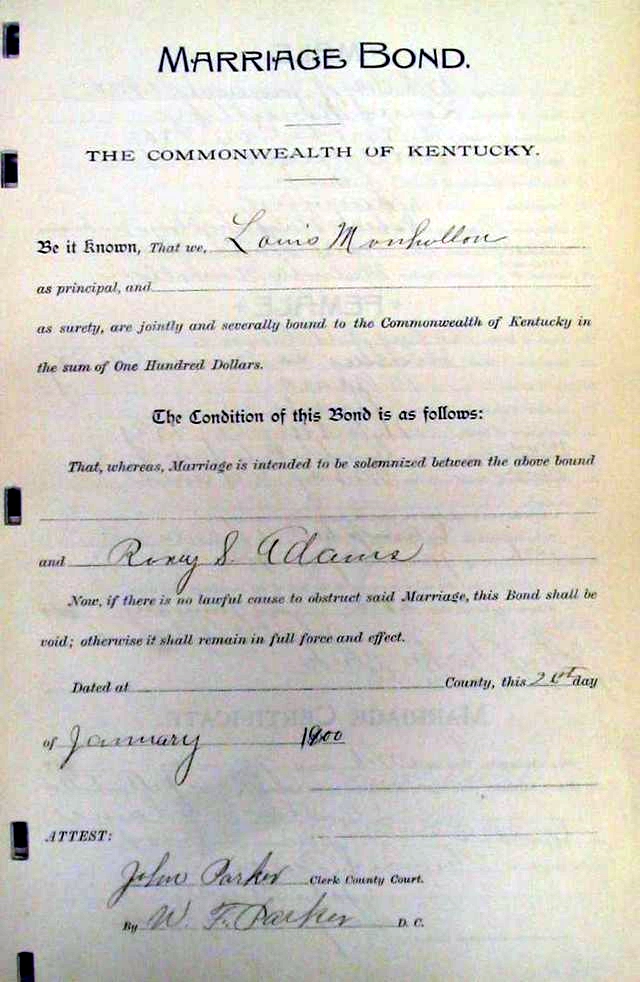 MARRIAGE BOND.
THE COMMONWEALTH OF KENTUCKY.
Be it Known, That we, Louis Monhollon
as principal, and
as surety, are jointly and severally bound to the Commonwealth of Kentucky in
the sum of One Hundred Dollars.
The Condition of this Bond is as follows:
That, whereas, Marriage is intended to be solemnized between the above bound
and Roxey S. Adams
Now, if there is no lawful cause to obstruct said Marriage, this Bond shall be
void; otherwise it shall remain in full force and effect.
Dated at County, this day
of January 1900
ATTEST:
John Parker Clerk County Court.
By W. F. Parker D. C.